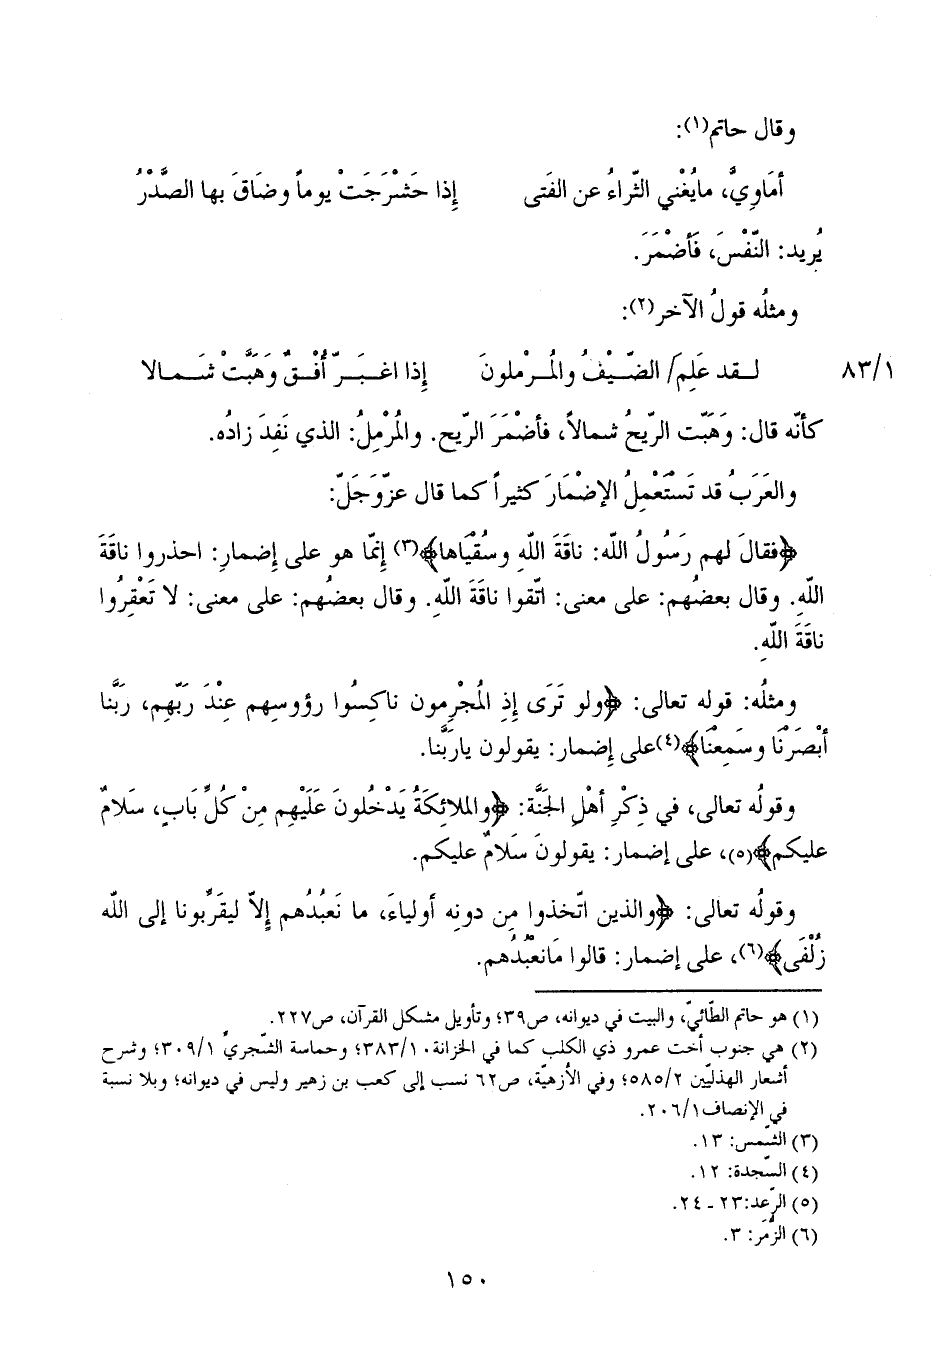 وقال حاتم(١):
أمَاوِيَّ، مايُغْني الثّراءُ عن الفَتى إذا حَشْرَجَتْ يوماً وضَاقَ بها الصَّدْرُ
يُريد: النّفْسَ، فَأضْمَرَ.
ومثلُه قولُ الآخر(٢):
لـقد عَلِمَ/ الضّـيْفُ والمُـرْملونَ إذا اغـبَـرّ أُفْـقٌ وَهَبَّتْ شَـمـالا ٨٣/١
كأنّه قال: وَهَبّت الرّيحُ شمالاً، فأضْمَرَ الرّيح. والمُرْمِلُ: الذي نَفِدَ زادُه.
والعَرَبُ قد تَسْتَعْمِلُ الإضْمَارَ كثيراً كما قال عزّوَجَلّ:
﴿فقالَ لهم رَسُولُ اللّه: ناقَةَ اللّهِ وسُقْيَاها﴾(٣) إنمّا هو على إضمار: احذروا ناقَةَ
اللّهِ. وقال بعضُهم: على معنى: اتّقوا ناقَةَ اللّهِ. وقال بعضُهم: على معنى: لا تَعْقِرُوا
ناقَةَ اللّهِ.
ومثلُه: قوله تعالى: ﴿ولو تَرَى إذِ المُجْرِمون ناكِسُوا رؤوسِهم عِنْدَ رَبّهِم، رَبَّنا
أبْصَرْنَا وسَمِعْنَا﴾(٤)على إضمار: يقولون ياربَّنا.
وقولُه تعالى، في ذِكْرِ أهْلِ الجَنَّة: ﴿والملائِكَةُ يَدْخُلونَ عَلَيْهِم مِنْ كُلِّ بَابٍ، سَلامٌ
عليكم﴾(٥)، على إضمار: يقولونَ سَلامٌ عليكم.
وقولُه تعالى: ﴿والذين اتّخذوا مِن دونِه أولياءَ، ما نَعبُدُهم إلاّ ليقَرِّبونا إلى اللّه
زُلْفَى﴾(٦)، على إضمار: قالوا مَانعْبُدُهم.
(١) هو حاتم الطّائيّ، والبيت في ديوانه، ص٣٩؛ وتأويل مشكل القرآن، ص٢٢٧.
(٢) هي جنوب أخت عمرو ذي الكلب كما في الخزانة٣٨٣/١٠؛ وحماسة الشّجريّ ٣٠٩/١؛ وشرح
أشعار الهذليّين ٥٨٥/٢؛ وفي الأزهيّة، ص٦٢ نسب إلى كعب بن زهير وليس في ديوانه؛ وبلا نسبة
في الإنصاف٢٠٦/١.
(٣) الشّمس: ١٣.
(٤) السّجدة: ١٢.
(٥) الرّعد:٢٣ ـ ٢٤.
(٦) الزّمَر: ٣.
١٥٠